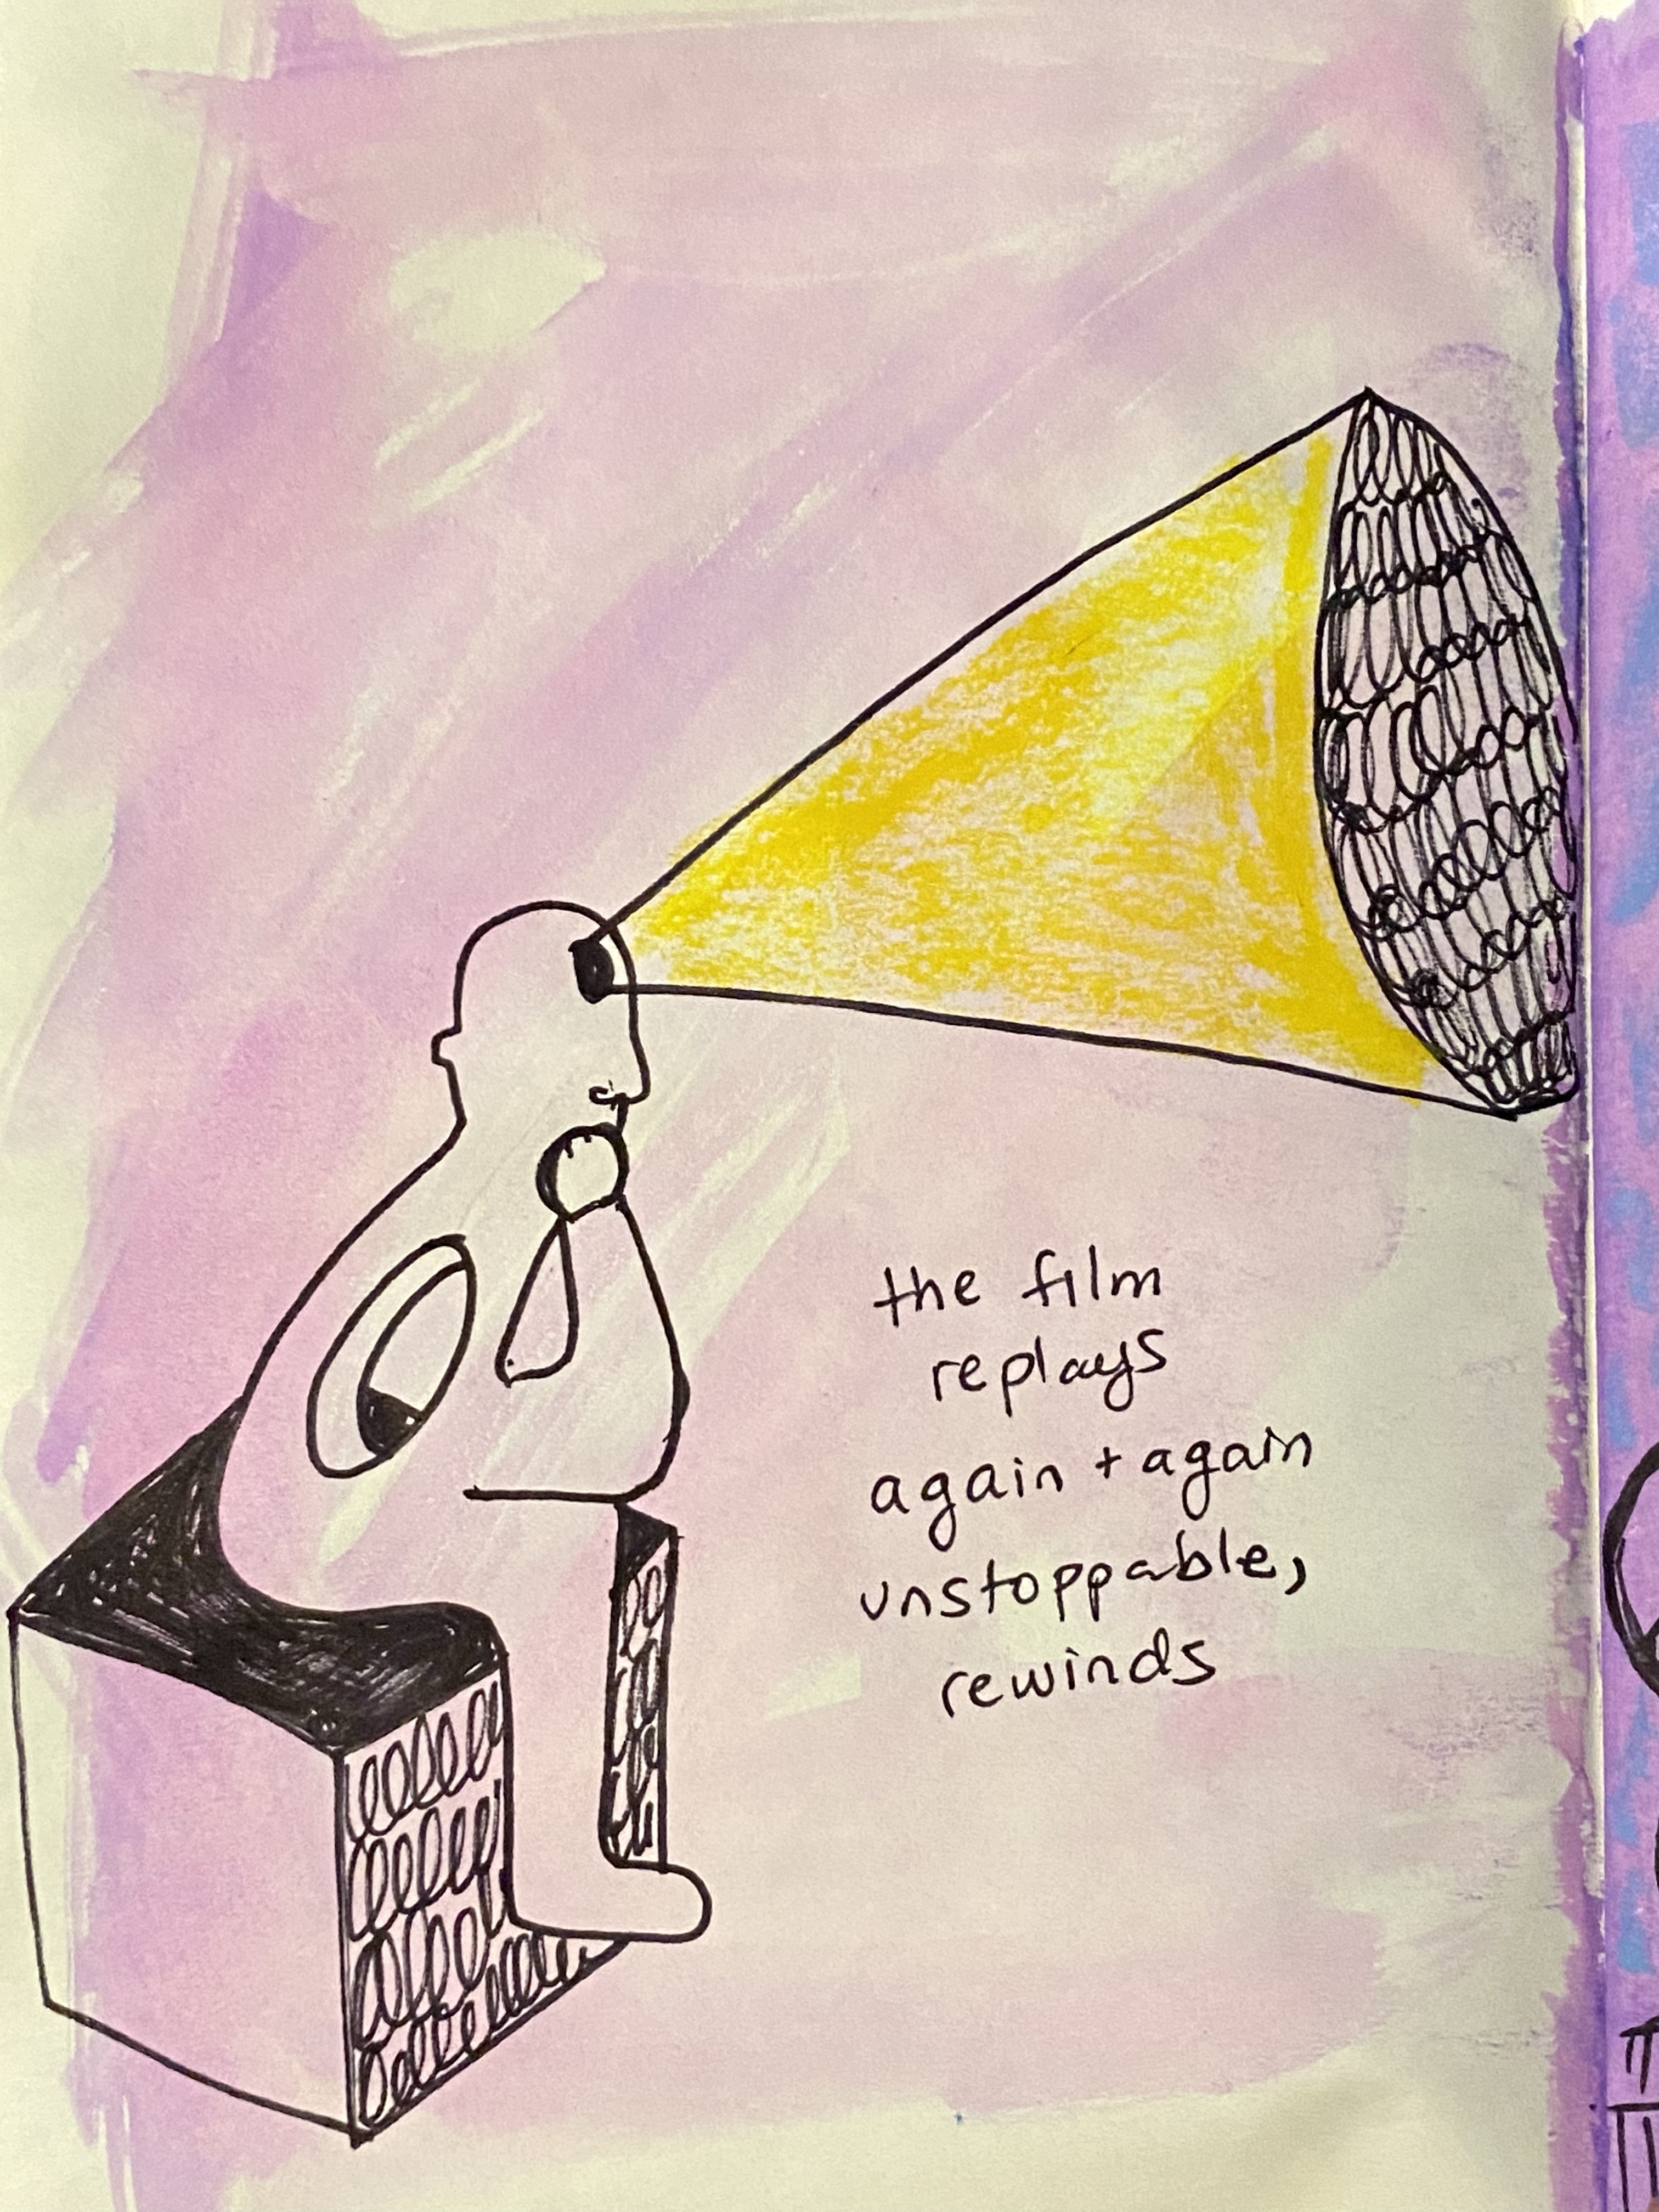 the film
replays
again + again
unstoppable,
rewinds